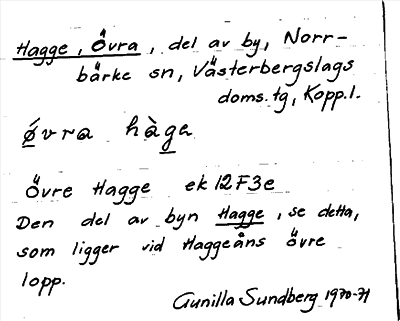 Hagge, Övra, del av by, Norr-
bärke sn, Västerbergslags
doms.tg, Kopp.l.
ǿvra hàge
Övre Hagge ek 12F3e
Den del av byn Hagge, se detta,
som ligger vid Haggeåns övre
lopp.
Gunilla Sundberg 1970-71